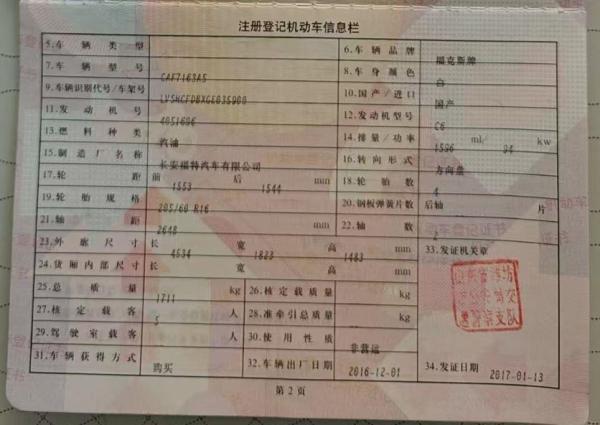 注册登记机动车信息栏
5.车辆类型
6.车辆品牌 福克斯牌
7.车辆型号 CAF7163A5
8.车身颜色 白
9.车辆识别代号/车架号
10.国产/进口 国产
11.发动机号
12.发动机型号 C6
13.燃料种类 汽油
14.排量/功率 1596 ml/ 94 kw
15.制造厂名称 长安福特汽车有限公司
16.转向形式 方向盘
17.轮距 前 1553 后 1544 mm
18.轮胎数 4
19.轮胎规格 205/60 R16
20.钢板弹簧片数 后轴 片
21.轴距 2648 mm
22.轴数
23.外廓尺寸 长 4534 宽 1823 高 1483 mm
33.发证机关章
24.货厢内部尺寸 长 宽 高 mm
25.总质量 1711 kg
26.核定载质量 kg
27.核定载客 5 人
28.准牵引总质量 kg
29.驾驶室载客 人
30.使用性质 非营运
31.车辆获得方式 购买
32.车辆出厂日期 2016-12-01
34.发证日期 2017-01-13
第2页